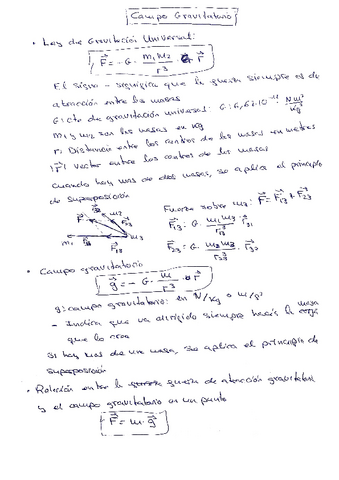 Campo Gravitatorio
• Ley de Gravitación Universal:
F⃗ = -G · m₁m₂/r³ · r⃗
El signo - significa que la fuerza siempre es de
atracción entre las masas
G: cte de gravitación universal: G: 6,67·10⁻¹¹ N·m²/kg²
m₁ y m₂ son las masas en kg
r: Distancia entre los centros de las masas en metros
|r⃗| vector entre los centros de las masas
Cuando hay mas de dos masas, se aplica el principio
de superposición
Fuerza sobre m₃: F⃗ = F⃗₁₃ + F⃗₂₃
F⃗₁₃ = G · m₁m₃/r³₁₃ · r⃗₃₁
F⃗₂₃ = G · m₂m₃/r³₂₃ · r⃗₃₂
m₂
m₁
m₃
• Campo gravitatorio
g⃗ = - G · m/r³ · r⃗
g: campo gravitatorio: en N/kg o m/s²
- Indica que va dirigido siempre hacia la masa
que lo crea
Si hay mas de un masa, se aplica el principio de
superposición
• Relación entre la fuerza de atracción gravitatoria
y el campo gravitatorio en un punto
F⃗ = m · g⃗